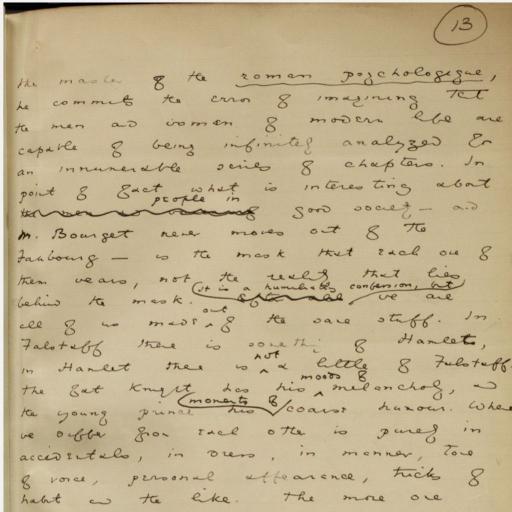 13
the master of the roman psychologique,
he commits the error of imagining that
the men and women of modern life are
capable of being infinitely analysed for
an innumerable series of chapters. In
point of fact what is interesting about
people in
good society — and
M. Bourget never moves out of the
Faubourg — is the mask that each one of
them wears, not the reality that lies
it is a humiliating confession, but
behind the mask. we are
out
all of us made of the same stuff. In
Falstaff there is something of Hamlet,
not
in Hamlet there is a little of Falstaff.
moods of
The fat knight has his melancholy, and
moments of
the young prince his coarse humour. Where
we differ from each other is purely in
accidentals, in dress, in manner, tone
of voice, personal appearance, tricks of
habit and the like. The more one